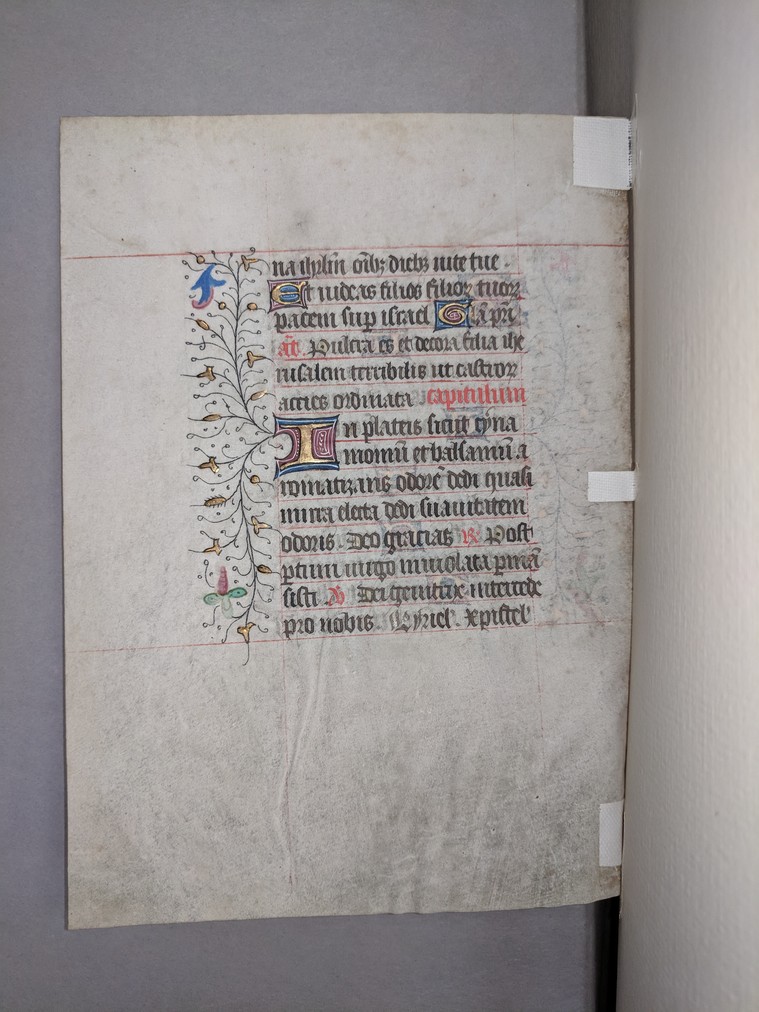 na ihrlm oibz diebz uite tue .
Et uideas filios filiorꝝ tuorꝝ
pacem sup israel Gla pri
añ. Pulcra es et decora filia ihe
rusalem terribilis ut castrorꝝ
acies ordinata capitulum
In plateis sicut cyna
momū et balsamū a
romatizans odorē dedi quasi
mirra electa dedi suauitatem
odoris. Deo gracias ℞ Post
ptum uirgo inuiolata pmā
sisti ℣ Dei genitrix intercede
pro nobis. Kyriel'. Xpistel'